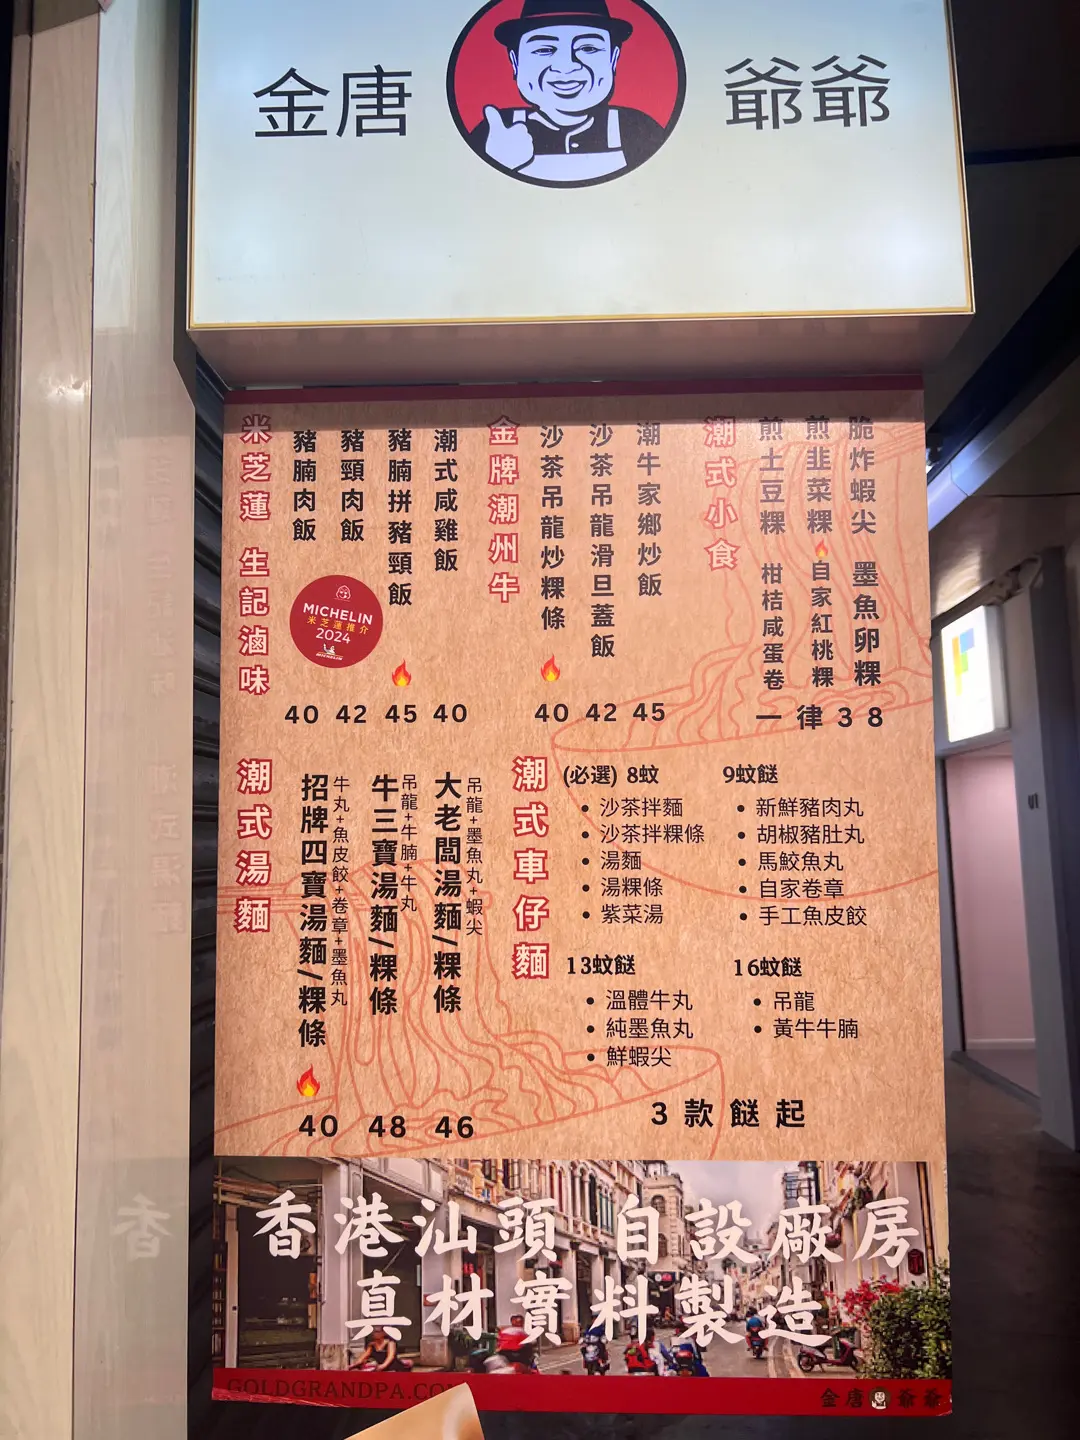 金唐 爺爺
米芝蓮 生記滷味
豬腩肉飯
豬頸肉飯
豬腩拼豬頸飯
潮式咸雞飯
MICHELIN
米芝蓮推介
2024
40 42 45 40
金牌潮州牛
沙茶吊龍炒粿條
沙茶吊龍滑旦蓋飯
潮牛家鄉炒飯
40 42 45
潮式小食
煎土豆粿 柑桔咸蛋卷
煎韭菜粿 自家紅桃粿
脆炸蝦尖 墨魚卵粿
一律38
潮式湯麵
招牌四寶湯麵/粿條
牛丸+魚皮餃+卷章+墨魚丸
牛三寶湯麵/粿條
吊龍+牛腩+牛丸
大老闆湯麵/粿條
吊龍+墨魚丸+蝦尖
40 48 46
潮式車仔麵
(必選) 8蚊
沙茶拌麵
沙茶拌粿條
湯麵
湯粿條
紫菜湯
9蚊餸
新鮮豬肉丸
胡椒豬肚丸
馬鮫魚丸
自家卷章
手工魚皮餃
13蚊餸
溫體牛丸
純墨魚丸
鮮蝦尖
16蚊餸
吊龍
黃牛牛腩
3款餸起
香港汕頭 自設廠房
真材實料製造
GOLDGRANDPA.CO
金唐 爺爺